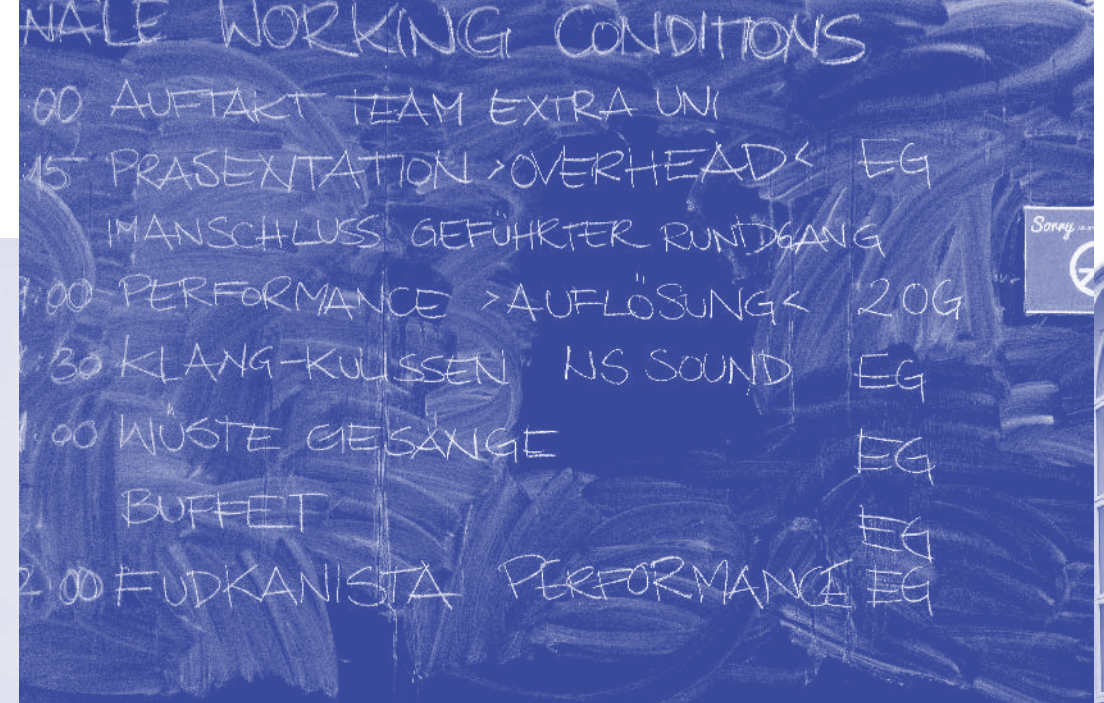 NALE WORKING CONDITIONS
:00 AUFTAKT TEAM EXTRA UNI
:45 PRÄSENTATION >OVERHEAD< EG
IMANSCHLUSS GEFÜHRTER RUNDGANG
:00 PERFORMANCE >AUFLÖSUNG< 2OG
:30 KLANG-KULISSEN EG
SOUND
:00 WÜSTE GESÄNGE EG
BUFFET EG
2:00 FUDKANISTA PERFORMANCE EG
Sorry